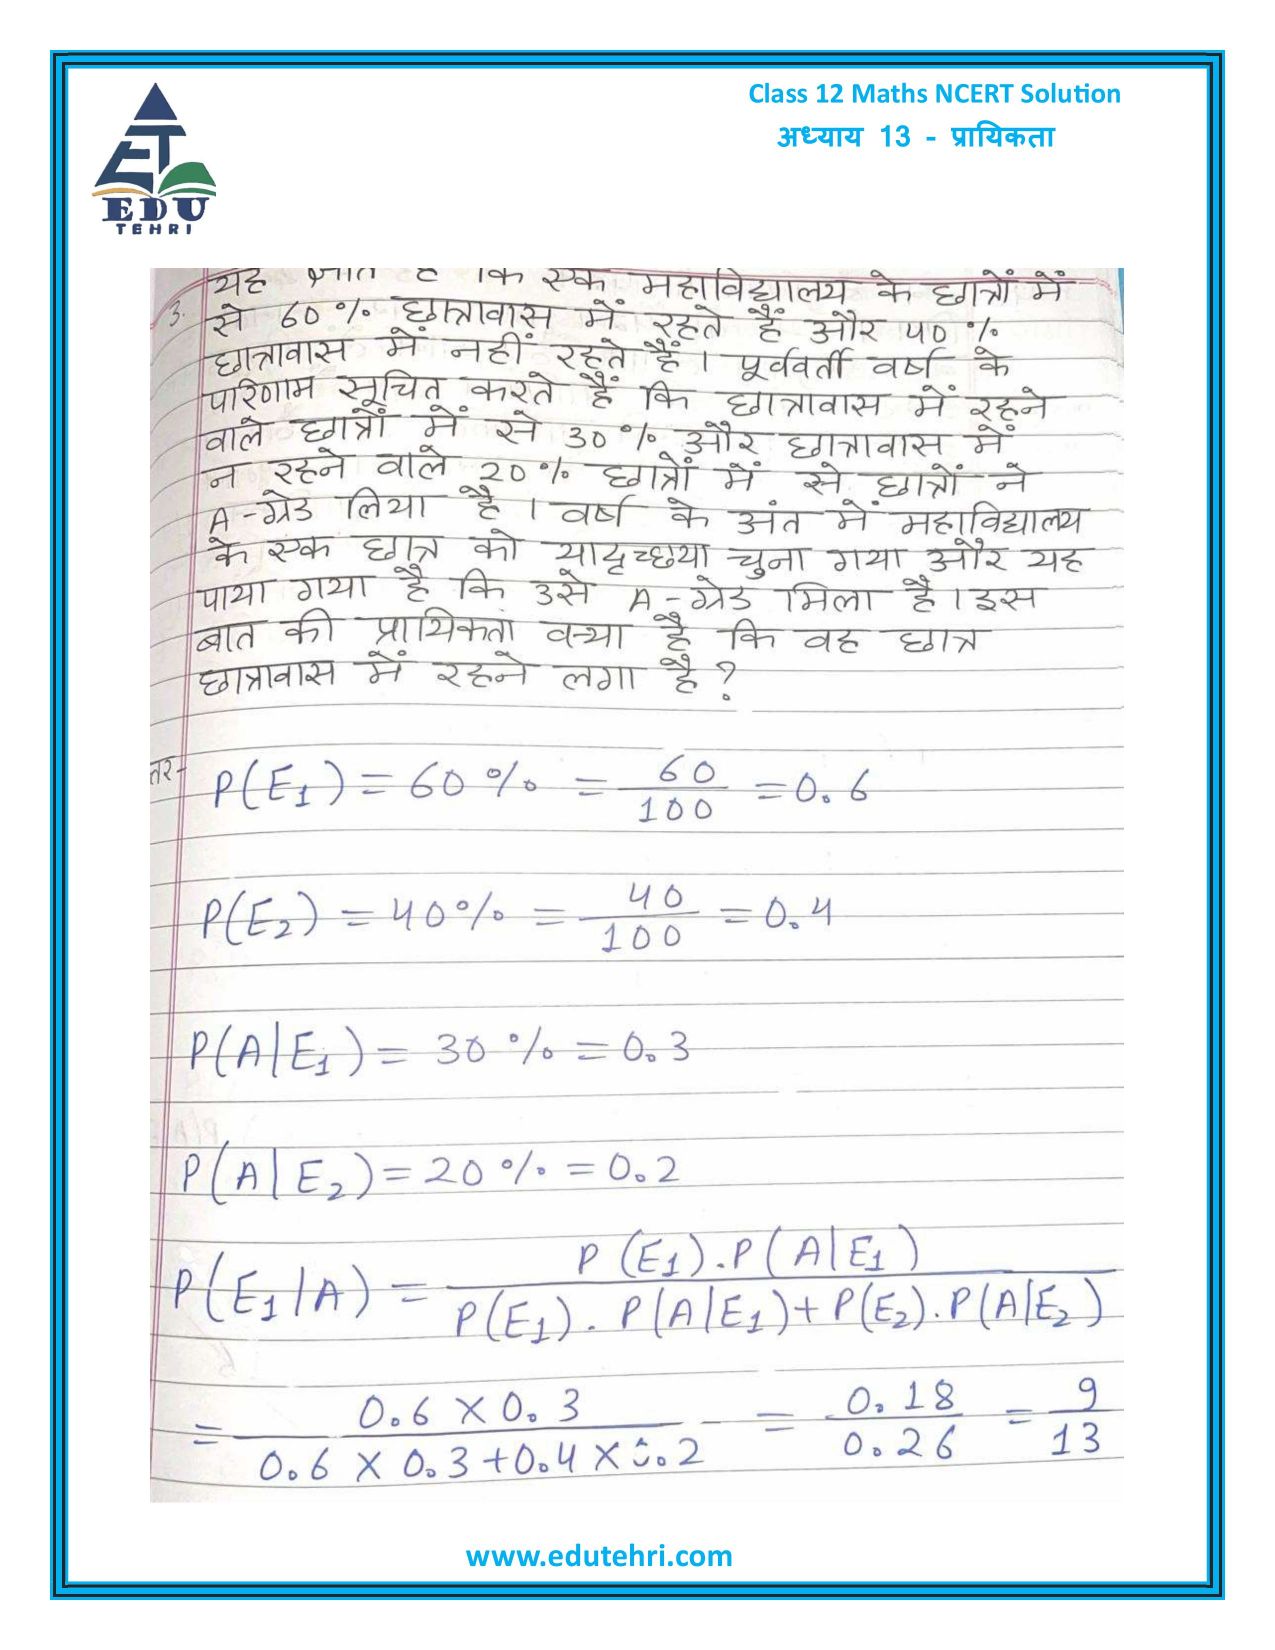 Class 12 Maths NCERT Solution
अध्याय 13 - प्रायिकता
EDU
TEHRI
3. यह ज्ञात है कि एक महाविद्यालय के छात्रों में
से 60% छात्रावास में रहते हैं और 40%
छात्रावास में नहीं रहते हैं। पूर्ववर्ती वर्ष के
परिणाम सूचित करते हैं कि छात्रावास में रहने
वाले छात्रों में से 30% और छात्रावास में
न रहने वाले 20% छात्रों में से छात्रों ने
A-ग्रेड लिया है। वर्ष के अंत में महाविद्यालय
के एक छात्र को यादृच्छया चुना गया और यह
पाया गया है कि उसे A-ग्रेड मिला है। इस
बात की प्रायिकता क्या है कि वह छात्र
छात्रावास में रहने लगा है?
तर- P(E₁) = 60% = 60/100 = 0.6
P(E₂) = 40% = 40/100 = 0.4
P(A|E₁) = 30% = 0.3
P(A|E₂) = 20% = 0.2
P(E₁|A) = P(E₁).P(A|E₁) / P(E₁).P(A|E₁)+P(E₂).P(A|E₂)
= 0.6 × 0.3 / 0.6 × 0.3+0.4 × 0.2 = 0.18/0.26 = 9/13
www.edutehri.com